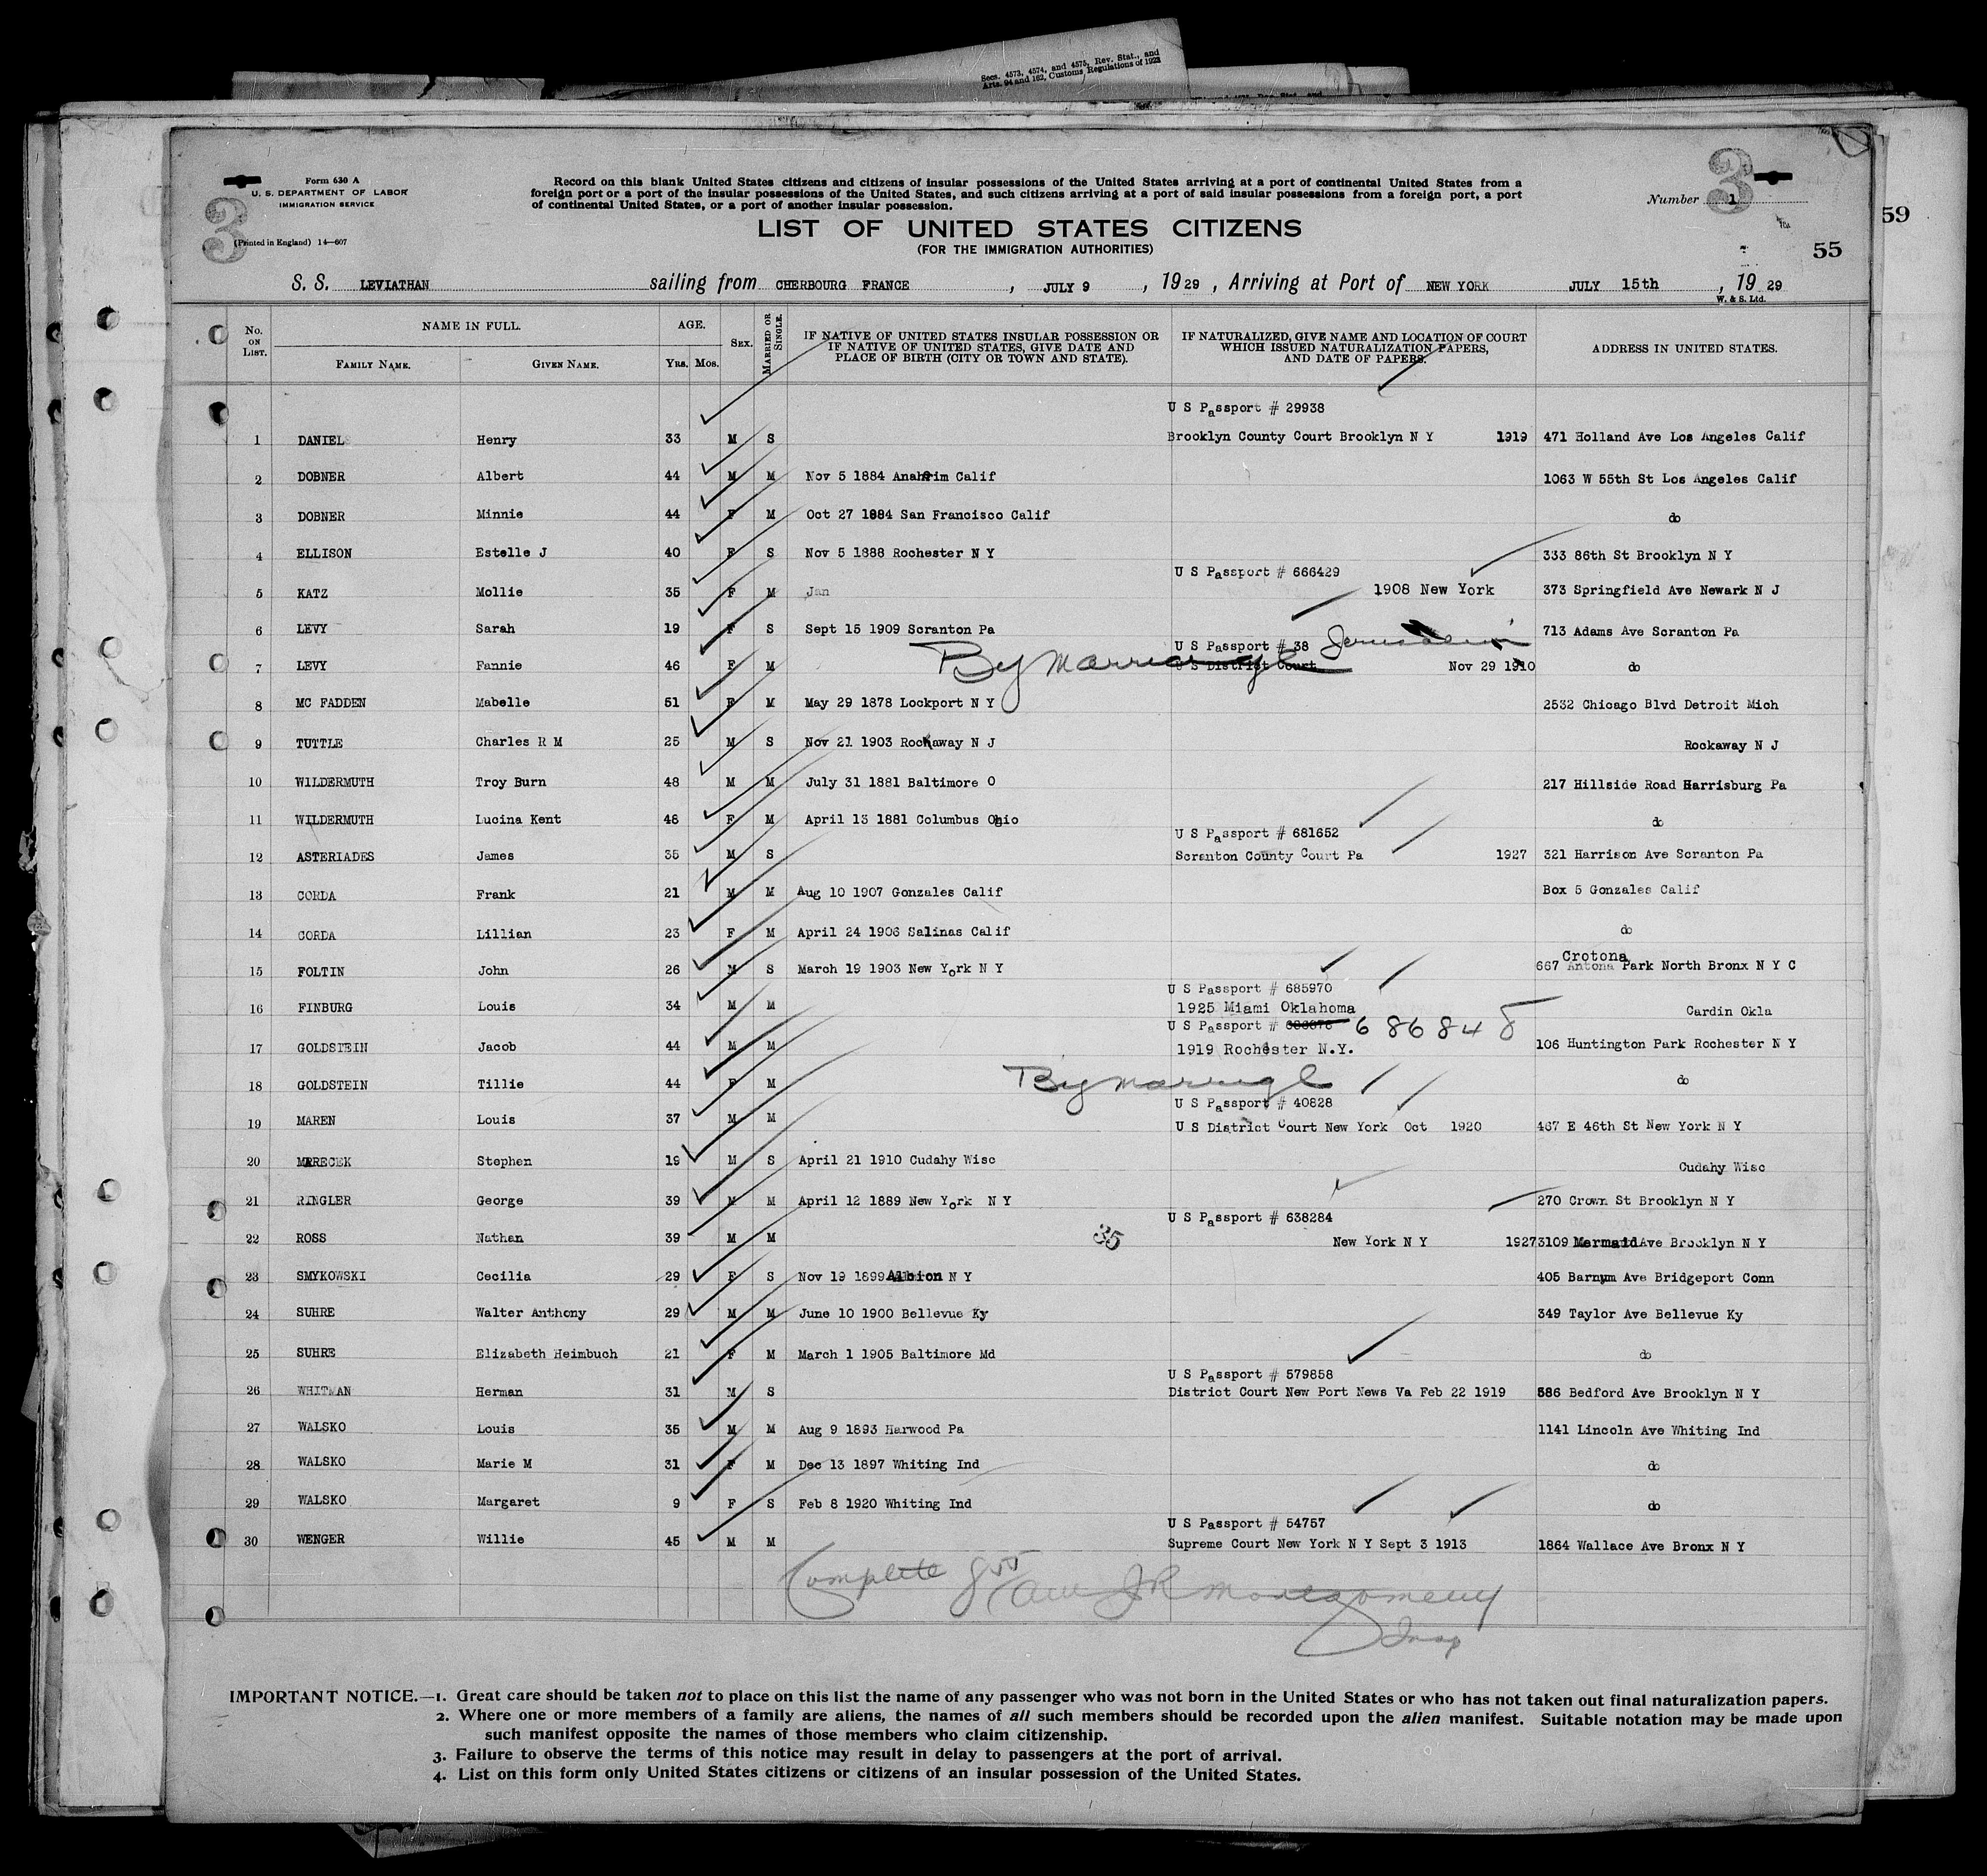 Secs. 4573, 4574, and 4575, Rev. Stat., and
Arts. 94 and 162, Customs Regulations of 1923
Form 630 A
U. S. DEPARTMENT OF LABOR
IMMIGRATION SERVICE
(Printed in England) 14—607
3
Record on this blank United States citizens and citizens of insular possessions of the United States arriving at a port of continental United States from a
foreign port or a port of the insular possessions of the United States, and such citizens arriving at a port of said insular possessions from a foreign port, a port
of continental United States, or a port of another insular possession.
LIST OF UNITED STATES CITIZENS
(FOR THE IMMIGRATION AUTHORITIES)
Number 1
3
59
55
S. S. LEVIATHAN sailing from CHERBOURG FRANCE, JULY 9, 1929, Arriving at Port of NEW YORK JULY 15th, 1929
W. & S. Ltd.
No. ON LIST. NAME IN FULL. FAMILY NAME. GIVEN NAME. AGE. YRS. MOS. SEX. MARRIED OR SINGLE. IF NATIVE OF UNITED STATES INSULAR POSSESSION OR IF NATIVE OF UNITED STATES, GIVE DATE AND PLACE OF BIRTH (CITY OR TOWN AND STATE). IF NATURALIZED, GIVE NAME AND LOCATION OF COURT WHICH ISSUED NATURALIZATION PAPERS, AND DATE OF PAPERS. ADDRESS IN UNITED STATES.
U S Passport # 29938
1 DANIEL Henry 33 M S Brooklyn County Court Brooklyn N Y 1919 471 Holland Ave Los Angeles Calif
2 DOBNER Albert 44 M M Nov 5 1884 Anaheim Calif 1063 W 55th St Los Angeles Calif
3 DOBNER Minnie 44 F M Oct 27 1884 San Francisco Calif do
4 ELLISON Estelle J 40 F S Nov 5 1888 Rochester N Y 333 86th St Brooklyn N Y
U S Passport # 666429
5 KATZ Mollie 35 F M Jan 1908 New York 373 Springfield Ave Newark N J
6 LEVY Sarah 19 F S Sept 15 1909 Scranton Pa 713 Adams Ave Scranton Pa
U S Passport # 38 Jerusalem
7 LEVY Fannie 46 F M By marriage U S District Court Nov 29 1910 do
8 MC FADDEN Mabelle 51 F M May 29 1878 Lockport N Y 2532 Chicago Blvd Detroit Mich
9 TUTTLE Charles R M 25 M S Nov 21 1903 Rockaway N J Rockaway N J
10 WILDERMUTH Troy Burn 48 M M July 31 1881 Baltimore O 217 Hillside Road Harrisburg Pa
11 WILDERMUTH Lucina Kent 48 F M April 13 1881 Columbus Ohio do
U S Passport # 681652
12 ASTERIADES James 35 M S Scranton County Court Pa 1927 321 Harrison Ave Scranton Pa
13 CORDA Frank 21 M M Aug 10 1907 Gonzales Calif Box 5 Gonzales Calif
14 CORDA Lillian 23 F M April 24 1906 Salinas Calif do
Crotona
15 FOLTIN John 26 M S March 19 1903 New York N Y 667 Antona Park North Bronx N Y C
U S Passport # 685970
16 FINBURG Louis 34 M M 1925 Miami Oklahoma Cardin Okla
U S Passport # 686848
17 GOLDSTEIN Jacob 44 M M 1919 Rochester N.Y. 106 Huntington Park Rochester N Y
18 GOLDSTEIN Tillie 44 F M By marriage do
U S Passport # 40828
19 MAREN Louis 37 M M U S District Court New York Oct 1920 467 E 46th St New York N Y
20 MRRECEK Stephen 19 M S April 21 1910 Cudahy Wisc Cudahy Wisc
21 RINGLER George 39 M M April 12 1889 New York N Y 270 Crown St Brooklyn N Y
U S Passport # 638284
22 ROSS Nathan 39 M M 35 New York N Y 1927 3109 Mermaid Ave Brooklyn N Y
23 SMYKOWSKI Cecilia 29 F S Nov 19 1899 Albion N Y 405 Barnum Ave Bridgeport Conn
24 SUHRE Walter Anthony 29 M M June 10 1900 Bellevue Ky 349 Taylor Ave Bellevue Ky
25 SUHRE Elizabeth Heimbuch 21 F M March 1 1905 Baltimore Md do
U S Passport # 579858
26 WHITMAN Herman 31 M S District Court New Port News Va Feb 22 1919 586 Bedford Ave Brooklyn N Y
27 WALSKO Louis 35 M M Aug 9 1893 Harwood Pa 1141 Lincoln Ave Whiting Ind
28 WALSKO Marie M 31 F M Dec 13 1897 Whiting Ind do
29 WALSKO Margaret 9 F S Feb 8 1920 Whiting Ind do
U S Passport # 54757
30 WENGER Willie 45 M M Supreme Court New York N Y Sept 3 1913 1864 Wallace Ave Bronx N Y
Complete JR Montgomery
Insp
IMPORTANT NOTICE.—1. Great care should be taken not to place on this list the name of any passenger who was not born in the United States or who has not taken out final naturalization papers.
2. Where one or more members of a family are aliens, the names of all such members should be recorded upon the alien manifest. Suitable notation may be made upon
such manifest opposite the names of those members who claim citizenship.
3. Failure to observe the terms of this notice may result in delay to passengers at the port of arrival.
4. List on this form only United States citizens or citizens of an insular possession of the United States.